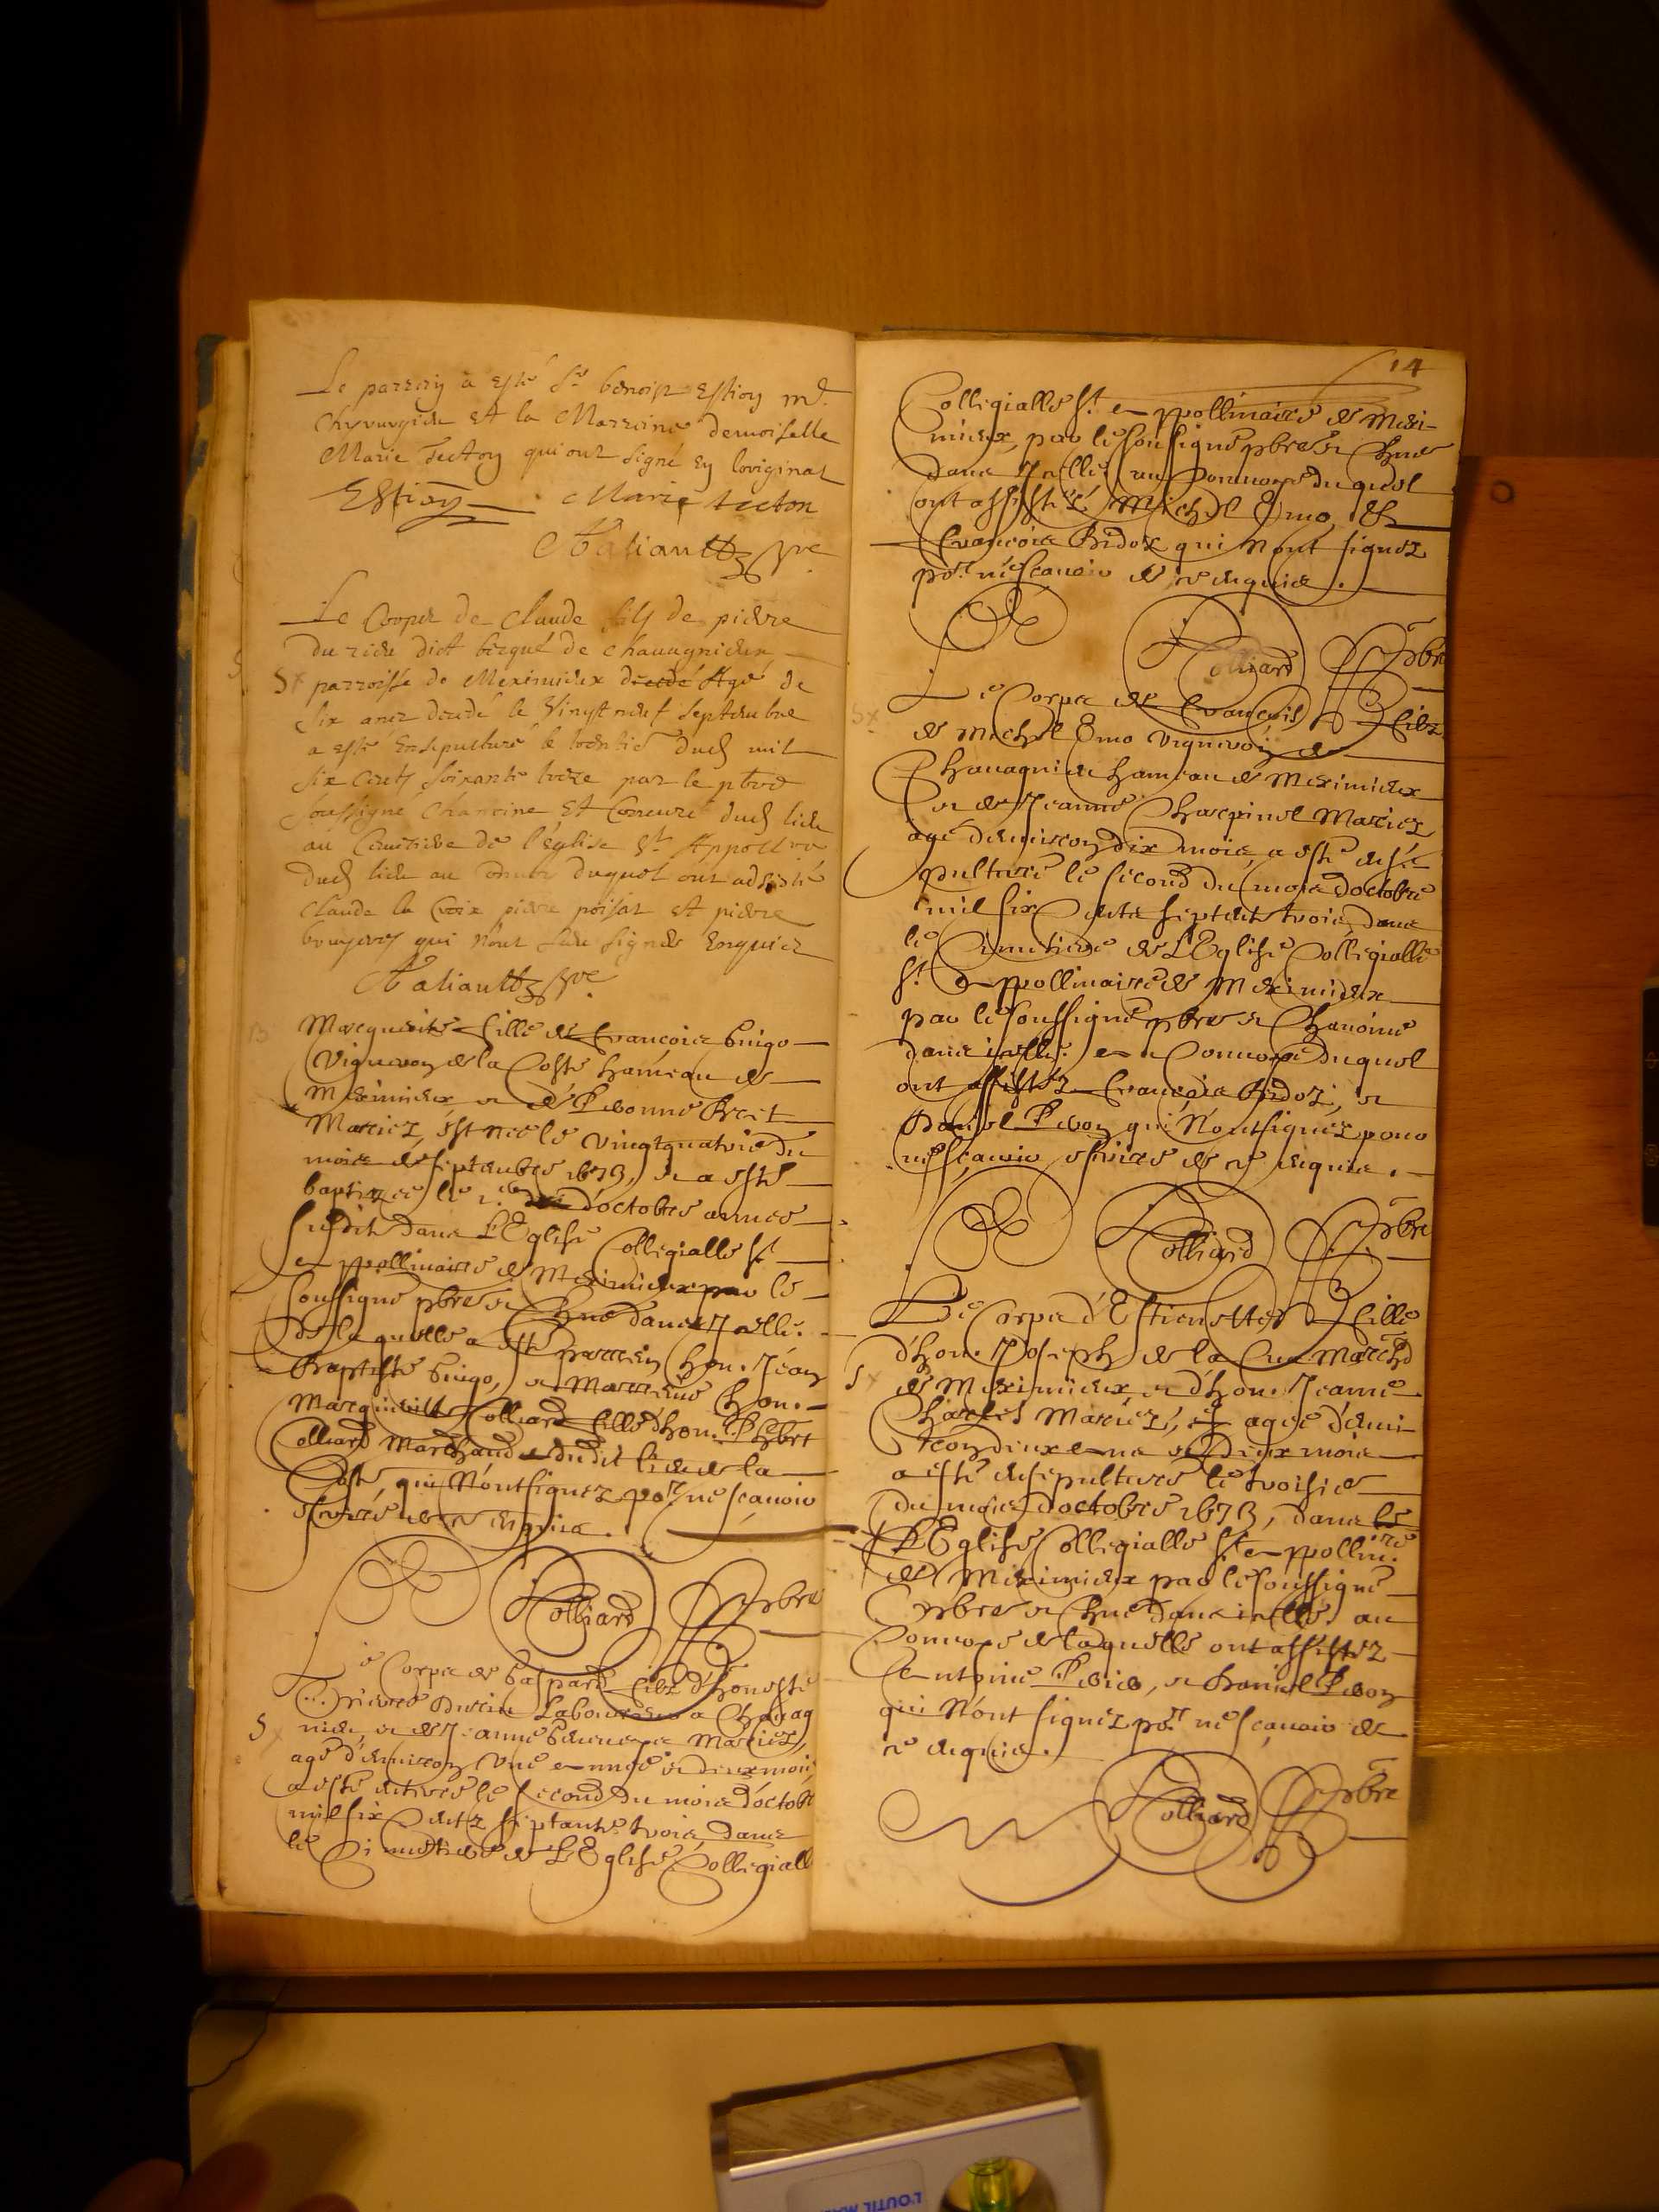 Le parrein a esté Sr benoist Estion md.
Chyrurgien et la Marreine demoiselle
Marie tecton qui ont signé en loriginal
Estion Marie tecton
pre
Le Corps de Claude fils de pierre
du dict de Chauagnieu
parroisse de Meximieux decedé Agé de
six ans decedé le Vingt neuf septembre
a esté Ensepulturé le trentie dud mil
six cents soixante treze par le pbre
soussigné Chanoine et Coneuré dud lieu
au Cimetiere de l'Eglise St
dud lieu au duquel ont adsisté
Claude la Croix pierre poisat et pierre
qui n'ont sceu signer Enquis
pre
B Marguerite fille de François bingo
Vigneron de la Coste hameau de
Meximieux et de Pernone
Mariez, est née le vingtquatrie du
mois de septembre 1673, et a esté
baptizée le d'octobre année
susdit dans L'Eglise Collegialle St
Appollinaire de Meximieux par le
soussigné pbre et Chne dans Icelle.
De laquelle a esté parrein hon. Jean
Baptiste bingo, et Marreine hon.
Marguerite Colliard fille d'hon.
Colliard Marchand dudit lieu de la
Coste, qui N'ont signez por ne scauoir
escrire de ce enquis.
Colliard pbre
Le Corps de Gaspard filz d'honeste
Pierre Laboureur a Chauag
S nieu, et de Jeanne Mariez,
agé d'enuiron Une année et deux mois
a esté enterré le second du mois d'octobr
mil six Centz septante trois, dans
le Cimetiere de L'Eglise Collegiall
14
Collegialle St Appollinaire de Mexi-
mieux, par le soussigné pbre et Chne
dans Icelle. au Conuoye duquel
ont assistéz Michel Emo, et
François Bidox qui N'ont signez
por ne Scauoir de ce enquis.
Colliard pbre
Le Corps de François filz
de Michel Emo Vigneron de
Chauagnieu hameau de Meximieux
et de Jeanne Charpinel Mariez
agé d'enuiron dix mois, a esté ensé-
pulturé le second du mois d'octobre
mil six Cents septente trois, dans
le Cimetiere de L'Eglise Collegialle
St Appollinaire de Meximieux
par le soussigné pbre et Chanoine
dans icelle. au Conuoye duquel
ont assistéz François Bidoz, et
Daniel qui N'ont signéz pour
ne sçauoir escrire de ce enquis.
Colliard pbre
Le Corps d'Estiennette fille
d'hon. Joseph de la Crua Marchd
S de Meximieux et d'hon. Jeanne
Mariez, agée d'enui-
ron deux ans et deux mois
a esté ensepulturé le troisie
du mois d'octobre 1673, dans le
L'Eglise Collegialle St Appollin.re
de Meximieux par le soussigné
pbre et Chne dans icelle. au
Conuoye de laquelle ont assistez
Antoine et Daniel
qui N'ont signez por ne sçauoir de
ce enquis.
Colliard pbre
L'OUTIL